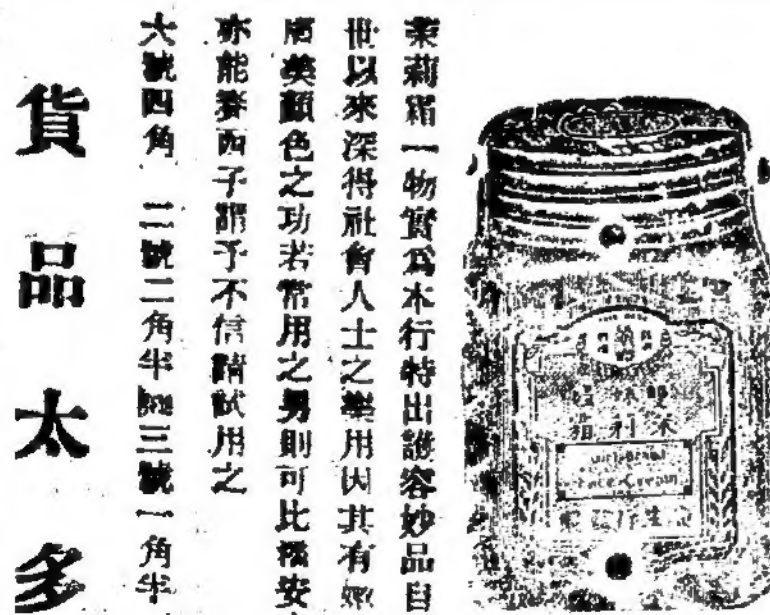 茉莉霜一物實爲本行特出護容妙品自
世以來深得社會人士之樂用因其有嫩
膚美顏色之功若常用之男則可比潘安
亦能賽西子謂予不信請試用之
大號四角 二號二角半 三號一角半
貨品太多
universal
Face Cream